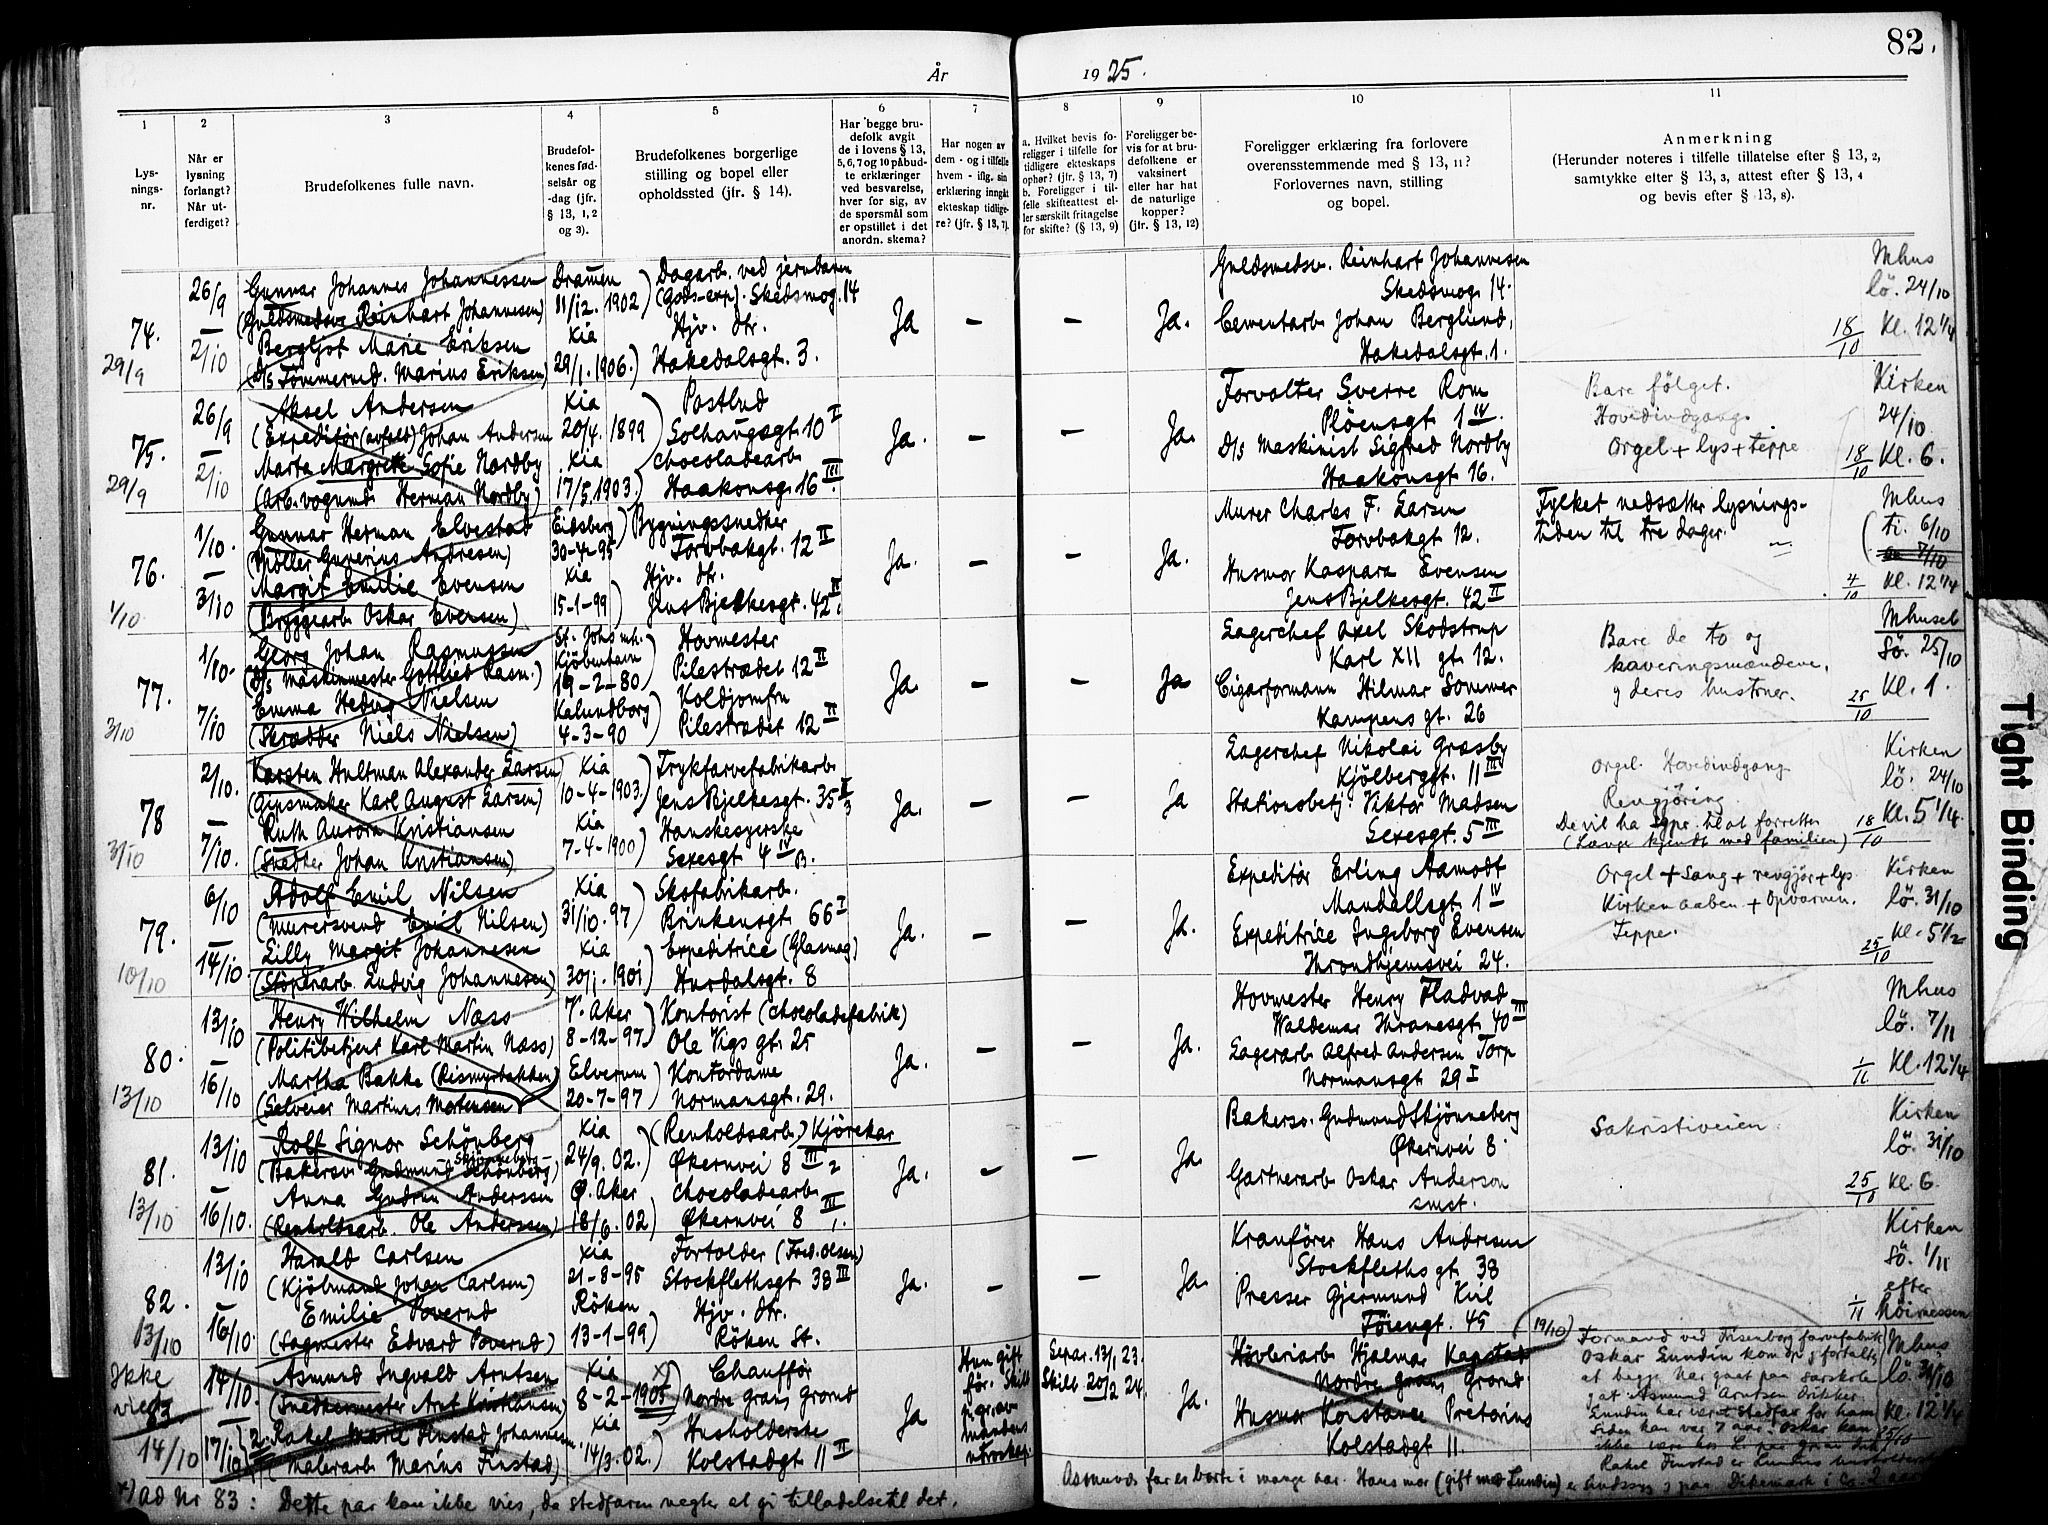 82.
År 1925.
1
2
3
4
5
6
7
8
9
10
11
Lys-
nings-
nr.
Når er
lysning
forlangt?
Når ut-
ferdiget?
Brudefolkenes fulle navn.
Brudefol-
kenes fød-
selsår og
-dag (jfr.
§ 13, 1, 2
og 3).
Brudefolkenes borgerlige
stilling og bopel eller
opholdssted (jfr. § 14).
Har begge bru-
defolk avgit
de i lovens § 13,
5, 6, 7 og 10 påbud-
te erklæringer
ved besvarelse,
hver for sig, av
de spørsmål som
er opstillet i det
anordn. skema?
Har nogen av
dem - og i tilfelle
hvem - iflg. sin
erklæring inngått
ekteskap tidlige-
re? (jfr. § 13, 7).
a. Hvilket bevis fo-
religger i tilfelle for
tidligere ekteskaps
ophør? (jfr. § 13, 7)
b. Foreligger i til-
felle skifteattest el-
ler særskilt fritagelse
for skifte? (§ 13, 9)
Foreligger be-
vis for at bru-
defolkene er
vaksinert
eller har hat
de naturlige
kopper?
(jfr. § 13, 12)
Foreligger erklæring fra forlovere
overensstemmende med § 13, 11?
Forlovernes navn, stilling
og bopel.
Anmerkning
(Herunder noteres i tilfelle tillatelse efter § 13, 2,
samtykke efter § 13, 3, attest efter § 13, 4
og bevis efter § 13, 8).
74.
29/9
26/9
—
2/10
Gunnar Johannes Johannessen
(Guldsmedsv Reinhart Johannesen)
Bergljot Marie Eriksen
(D/s Tömmermd. Marius Eriksen)
Drammen
11/12. 1902
Xia
29/1. 1906.
Dagarb. ved jernbanen
(Gods-exp). Skedsmog. 14
Hjv. dtr.
Hakedalsgt. 3.
Ja
—
—
Ja.
Guldsmedsv. Reinhart Johannesen
Skedsmog 14.
Cementarb Johan Berglund,
Hakedalsgt. 1.
Mhus
lö. 24/10
18/10 Kl. 12 1/4
75.
29/9
26/9
—
2/10
Aksel Andersen
(Expeditör (avfeld) Johan Andersen
Marta Margrethe Sofie Nordby
(Arb. vognmd. Herman Nordby)
Xia
20/4. 1899
Xia
17/5. 1903.
Postbud
Solhaugsgt. 10 I
Chocoladearb
Haakonsg. 16 III
Ja.
—
—
Ja.
Forvalter Sverre Rom
Plöensgt. 1 IV.
D/s Maskinist Sigfred Nordby
Haakonsgt 16.
Bare fölget.
Hovedindgang
Orgel + lys + teppe
Kirken
24/10
18/10 Kl. 6.
76.
1/10
1/10.
—
3/10
Gunnar Herman Elvestad
(Möller Gunerius Andresen)
Margit Emilie Evensen
(Bryggearb Oskar Evensen)
Eidsberg
30-4-95
Xia
15-1-99
Bygningssnedker
Torvbakgt. 12 II
Hjv. dtr.
Jens Bjelkesgt. 42 II
Ja.
—
—
Ja.
Murer Charles F. Larsen
Torvbakgt 12.
Husmor Kaspara Evensen
Jens Bjelkesgt. 42 II
Fylket nedsætter lysnings-
tiden til tre dager.
Mhus
ti. 6/10
7/10
4/10 Kl. 12 1/4
77.
3/10
1/10.
—
7/10
Georg Johan Rasmussen
(D/s Maskinmester Gottlied Rasm.)
Emma Hedvig Nielsen
(Skrædder Niels Nielsen)
St. Johs mh.
Kjöbenhavn
19-2-80
Kalundborg
4-3-90
Hovmester
Pilestrædet 12 II
Koldjomfru
Pilestrædet 12 II
Ja.
—
—
Ja
Lagerchef Axel Skodstrup
Karl XII gt. 12.
Cigarformann Hilmar Sommer
Kampens gt. 26
Bare de to og
kaveringsmændene,
g deres hustruer.
Mhuset
Sö. 25/10
25/10 Kl. 1.
78
3/10
2/10.
—
7/10.
Karsten Hultman Alexander Larsen
(Gipsmaker Karl August Larsen)
Ruth Aurora Kristiansen
(Snedker Johan Kristiansen)
Xia
10-4-1903.
Xia
7-4-1900
Trykfarvefabrikarb
Jens Bjelkesgt. 35 II 3
Hanskesyerske
Sexesgt 4 IV B.
Ja.
—
—
Ja
Lagerchef Nikolai Græsby
Kjölberggt. 11 III
Stationsbetj. Viktor Madsen
Sexesgt. 5 III
Orgel. Hovedindgang
Rengjöring
De vil ha spr. til at forrette
(Længe kjendt med familien)
Kirken
lö. 24/10
18/10 Kl. 5 1/4
79.
10/10
6/10
—
14/10.
Adolf Emil Nilsen
(Murersvend Emil Nilsen)
Lilly Margit Johannesen
(Stöperarb Ludvig Johannesen)
Xia
31/10. 97
Xia
30/1. 1901
Skofabrikarb.
Brinkensgt. 66 I
Expeditrice (Glasmag)
Hurdalsgt. 8
Ja.
—
—
Ja.
Expeditör Erling Aamodt
Mandallsgt. 1 IV
Expeditrice Ingeborg Evensen
Throndhjemsvei 24.
Orgel + Sang + rengjör + lys
Kirken aaben + Opvarmn.
Teppe.
Kirken
lö. 31/10
25/10 Kl. 5 1/2
80.
13/10
13/10
—
16/10
Henry Wilhelm Næss
(Politibetjent Karl Martin Næss)
Martha Bakke (Rismyrbakken)
(Selveier Martinus Mortensen)
V. Aker
8-12-97
Elverum
20-7-97
Kontorist (Chocoladefabrik)
Ole Vigs gt. 25
Kontordame
Normansgt. 29.
Ja.
—
—
Ja.
Hovmester Henry Fladvad
Waldemar Thranesgt. 40 III
Lagerarb Alfred Andersen Torp
Normansgt 29 I
Mhus
lö. 7/11
1/11 Kl. 12 1/4
81.
13/10
13/10
—
16/10.
Rolf Signor Schönberg
Skjönneberg
(Bakersv Gudmund Schönberg)
Anna Gudrun Anderssen
(Renholdsarb. Ole Anderssen)
Xia
24/9. 02.
Ø. Aker
18/6. 02
(Renholdsarb.) Kjörekar
Økernvei 8 III 2
Chocoladearb
Økernvei 8 III 1.
Ja.
—
—
Ja.
Bakersv. Gudmund Skjönneberg
Økernvei 8
Gartnerarb Oskar Anderson
smst.
Sakristiveien
Kirken
lö. 31/10
25/10 Kl. 6.
82.
13/10
13/10
—
16/10.
Harald Carlsen
(Kjölmand Johan Carlsen)
Emilie Poverud
(Sagmester Edvard Poverud)
Xia
21-8-95
Röken
13-1-99
Fortolder (Fred. Olsen)
Stockflethsgt 38 III
Hjv. dtr.
Röken St.
Ja.
—
—
Ja.
Kranförer Hans Andresen
Stockfleths gt. 38
Presser Gjermund Kiil
Töiengt. 45
Kirken
Sö. 1/11
efter
1/11 Höimessen
Ikke
viet
83
14/10
14/10.
—
17/10
Asmund Ingvald Arntsen
(Snedkermester Arnt Kristiansen)
2. Rakel Marie Finstad Johannesen
(Malerarb Marius Finstad)
Xia
8-2-1905
Xia
14/3. 02.
x)
Chaufför
Nordre gran, Grorud
Husholderske
Kolstadgt 11 II
Ja
Hun gift
för. Skilt
p. grav
mandens
utroskap
Separ. 13/1 23.
Skilt 20/2 24.
Ja.
Hövleriarb Hjalmar Kapstad
Nordre gran, Grorud.
Husmor Konstance Pretorius
Kolstadgt 11.
(19/10)
Formand ved Frisenborg farvefabrik
Oskar Lundin kom op g fortalte
at begge har gaet paa særskole
g at Asmund Arntsen drikker.
Lundin har været stedfar for ham
siden han var 7 aar. Oskar kan
Rakel Finstad er Lundins
Mhus
lö. 31/10
Kl. 12 1/4
25/10
x) Ad Nr 83: Dette par kan ikke vies, da stedfaren negter at gi tilladelse til det.
Asmunds far er borte i mange aar. Hans mor (gift med Lundin) er sindssyg g paa Dikemark i ca. 2 aar
Tight Binding